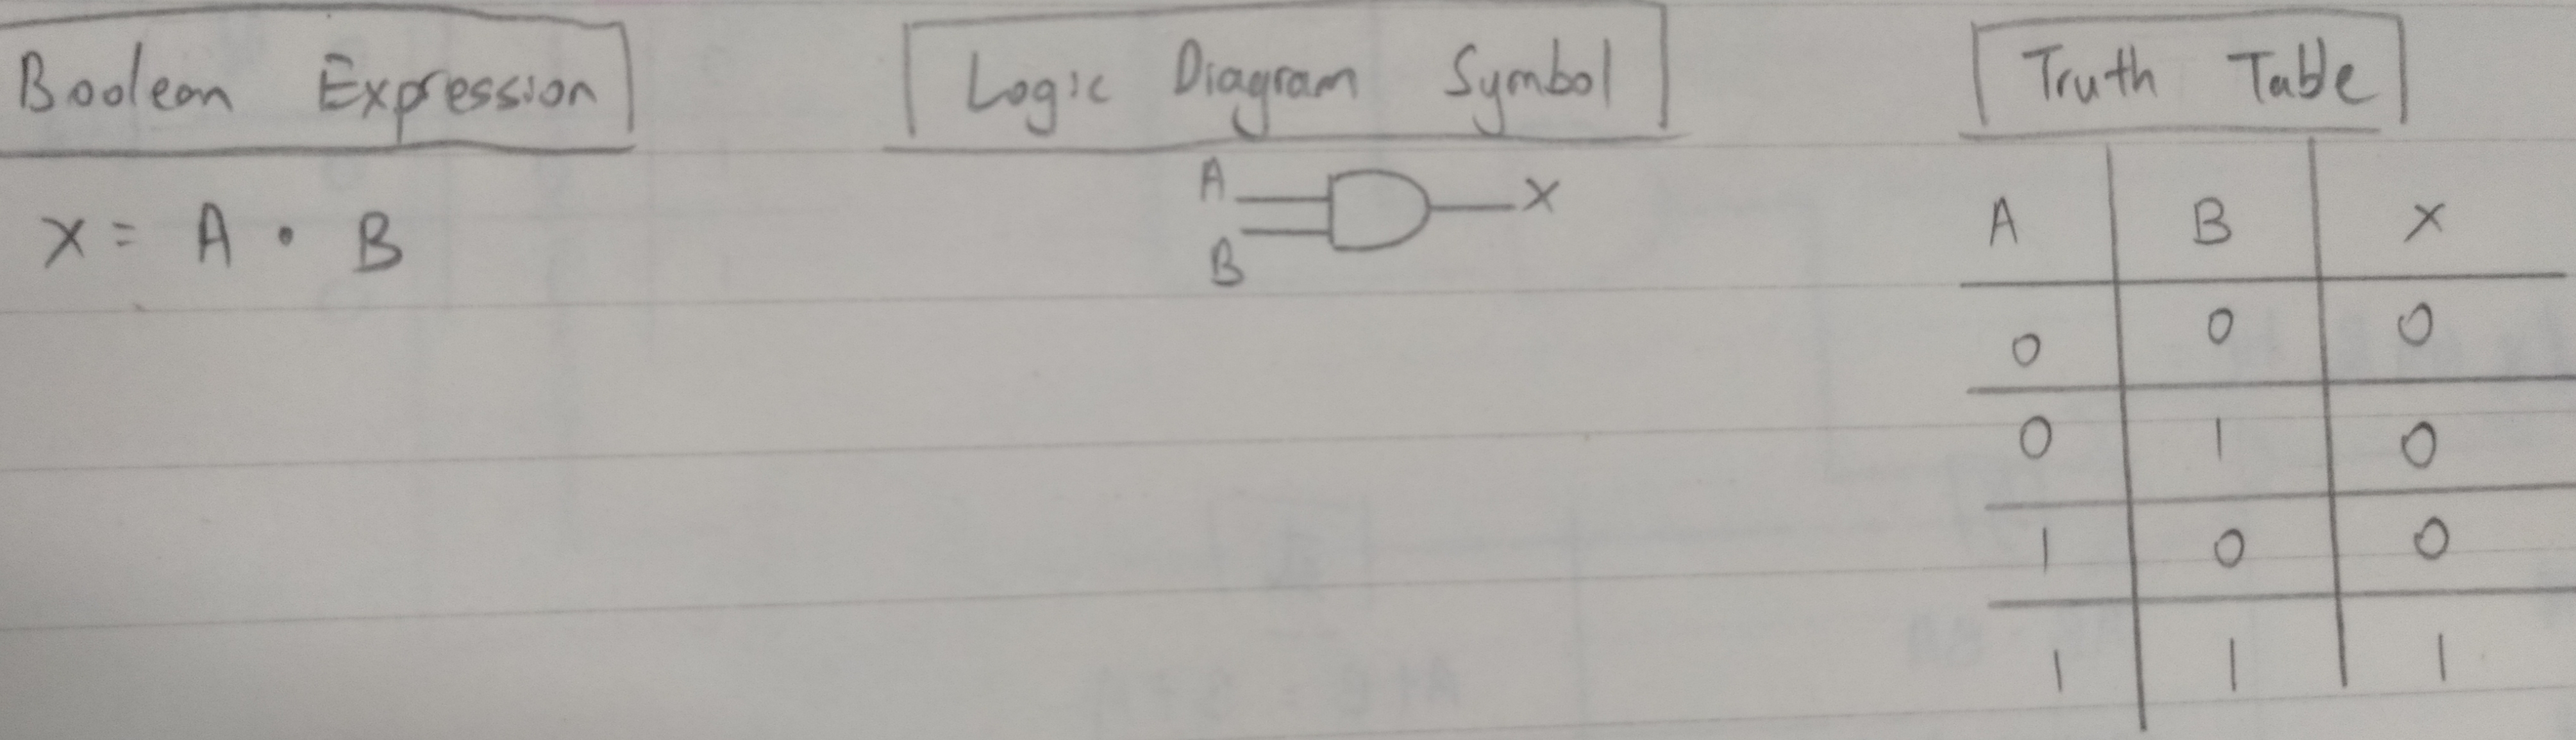 Boolean Expression
Logic Diagram Symbol
Truth Table
X = A • B
A
B
X
A B X
0 0 0
0 1 0
1 0 0
1 1 1